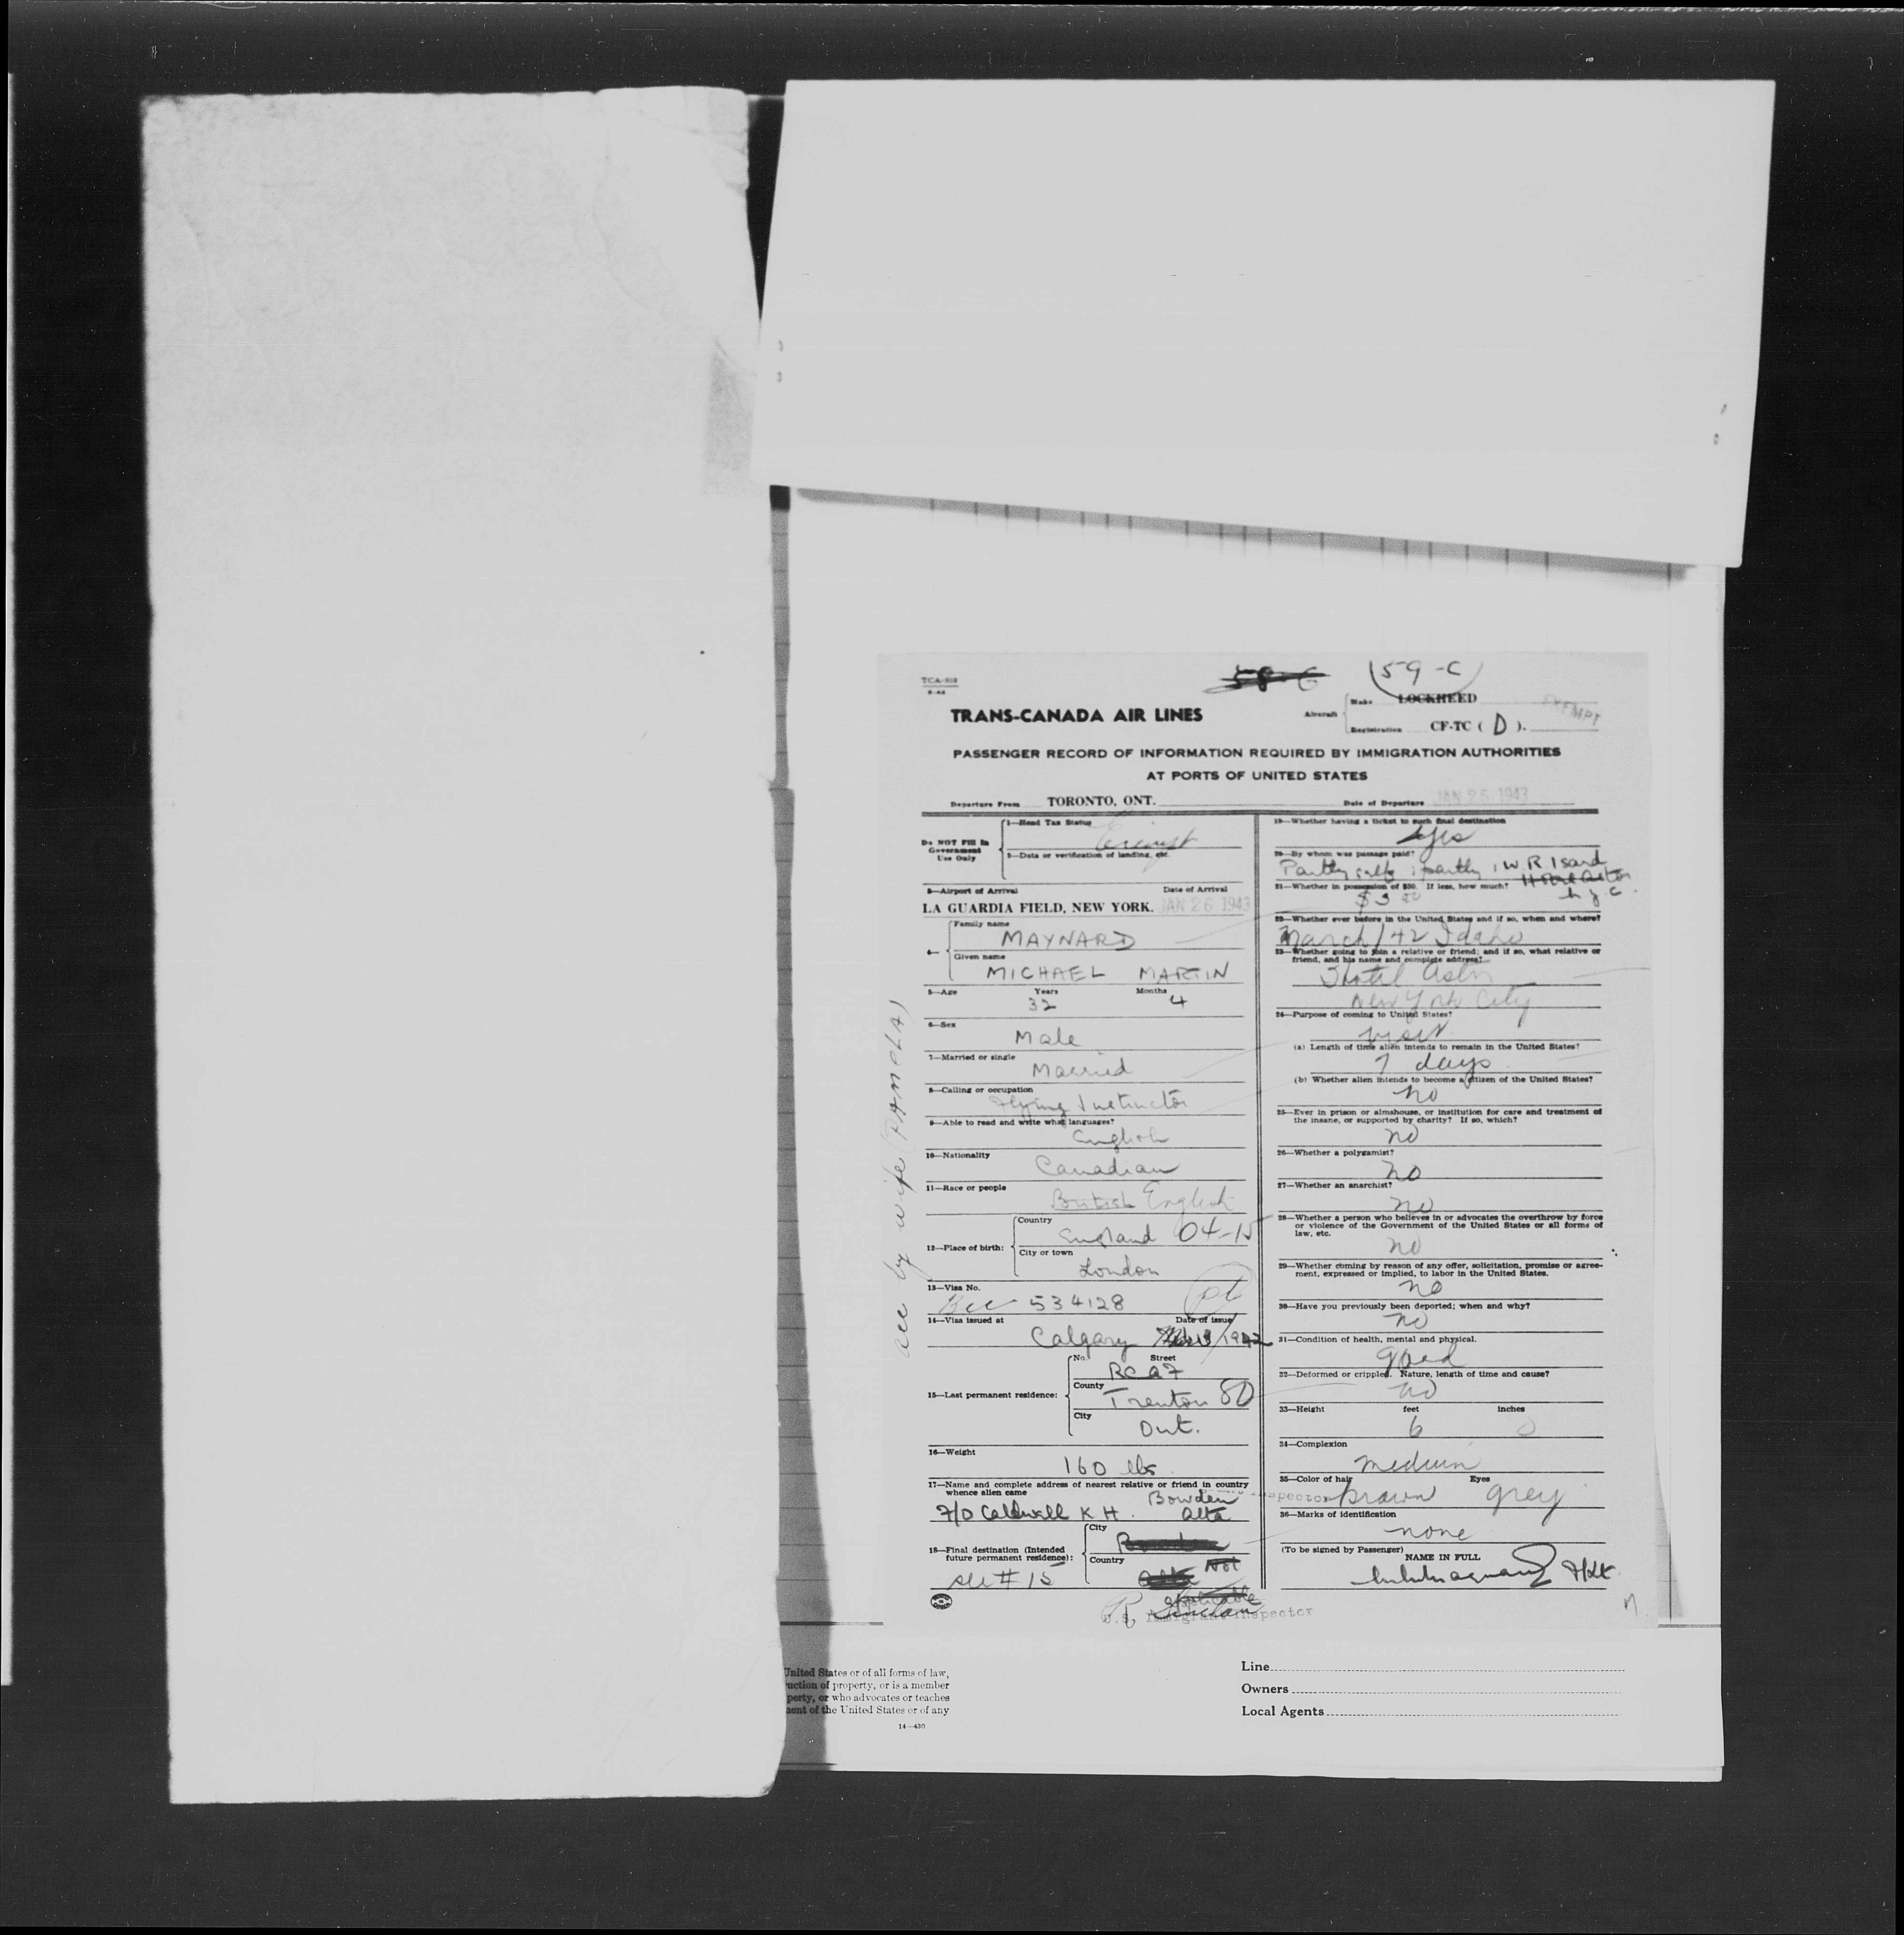 59-C
TCA-
TRANS-CANADA AIR LINES
Aircraft
Make LOCKHEED
EXEMPT
Registration CF-TC ( D ).
PASSENGER RECORD OF INFORMATION REQUIRED BY IMMIGRATION AUTHORITIES
AT PORTS OF UNITED STATES
Departure From TORONTO, ONT.
Date of Departure JAN 25 1943
Do NOT Fill In
Government
Use Only
1—Head Tax Status
2—Data or verification of landing, etc.
3—Airport of Arrival Date of Arrival
LA GUARDIA FIELD, NEW YORK. JAN 26 1943
4—
Family name
MAYNARD
Given name
MICHAEL MARTIN
5—Age Years Months
32 4
6—Sex
Male
7—Married or single
Married
8—Calling or occupation
Flying Instructor
9—Able to read and write what languages?
English
10—Nationality
Canadian
11—Race or people
British English
12—Place of birth:
Country
England 04-15
City or town
London
13—Visa No.
534128
14—Visa issued at Date of issue
Calgary 1942
15—Last permanent residence:
No. Street
RCAF
County
Trenton 80
City
Ont.
16—Weight
160 lbs
17—Name and complete address of nearest relative or friend in country
whence alien came
Bowden
F/O Caldwell K H. Alta
18—Final destination (Intended
future permanent residence):
City
Country
Not
applicable
# 15
U.S. Immigrant Inspector
acc by wife (PAMELA)
19—Whether having a ticket to such final destination
Yes
20—By whom was passage paid?
Partly self ; partly W R Isard
21—Whether in possession of $50. If less, how much?
22—Whether ever before in the United States and if so, when and where?
March/42 Idaho
23—Whether going to join a relative or friend; and if so, what relative or
friend, and his name and complete address?
Hotel Astor
New York City
24—Purpose of coming to United States?
visit
(a) Length of time alien intends to remain in the United States?
7 days
(b) Whether alien intends to become a citizen of the United States?
no
25—Ever in prison or almshouse, or institution for care and treatment of
the insane, or supported by charity? If so, which?
no
26—Whether a polygamist?
no
27—Whether an anarchist?
no
28—Whether a person who believes in or advocates the overthrow by force
or violence of the Government of the United States or all forms of
law, etc.
no
29—Whether coming by reason of any offer, solicitation, promise or agree-
ment, expressed or implied, to labor in the United States.
no
30—Have you previously been deported; when and why?
no
31—Condition of health, mental and physical.
good
32—Deformed or crippled. Nature, length of time and cause?
no
33—Height feet inches
6 0
34—Complexion
medium
35—Color of hair Eyes
brown grey
36—Marks of identification
none
(To be signed by Passenger)
NAME IN FULL
F/Lt.
United States or of all forms of law,
uction of property, or is a member
perty, or who advocates or teaches
ment of the United States or of any
14—430
Line
Owners
Local Agents